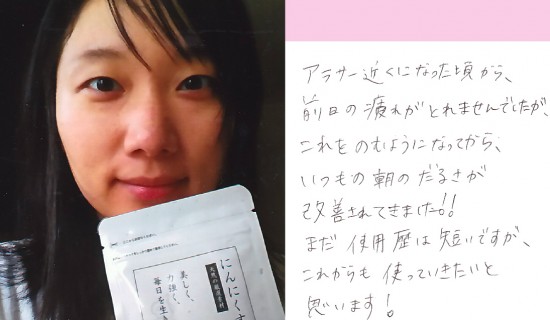 アラサー近くになった頃から、
前日の疲れがとれませんでしたが、
これをのむようになってから、
いつもの朝のだるさが
改善されてきました!!
まだ使用歴は短いですが、
これからも使っていきたいと
思います!
にんにくす
美しく、
力強く、
毎日を生き